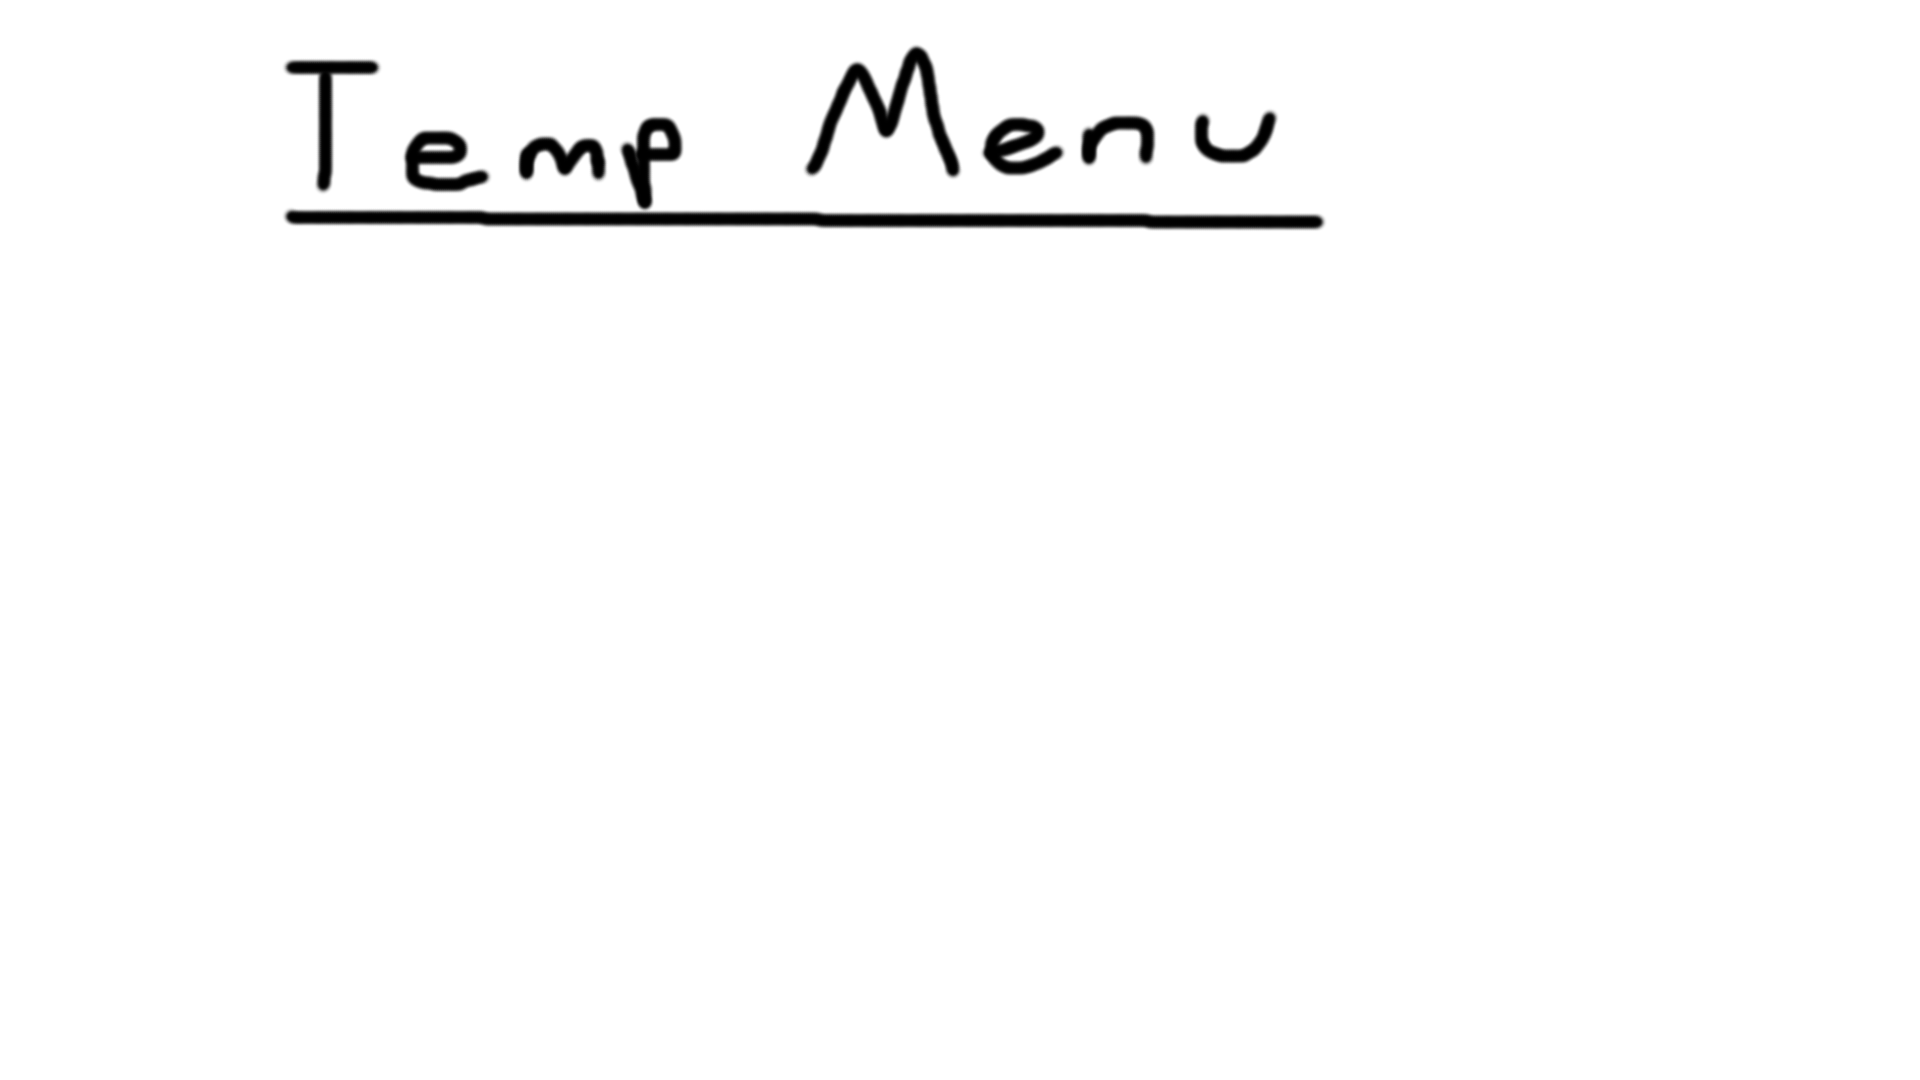 Temp Menu